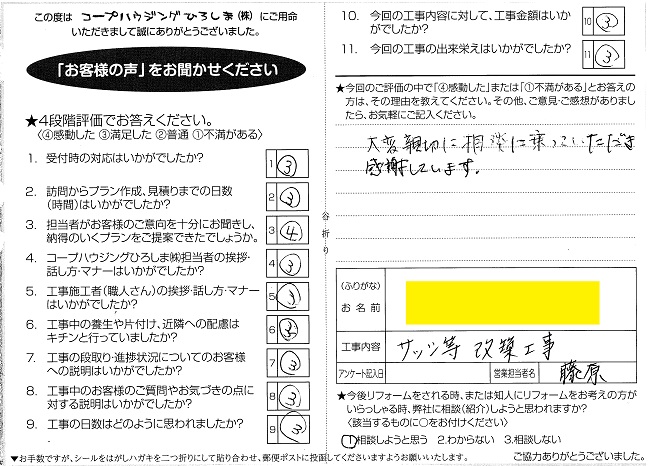 この度は コープハウジングひろしま(株) にご用命
いただきまして誠にありがとうございました。
「お客様の声」をお聞かせください
★4段階評価でお答えください。
〈④感動した ③満足した ②普通 ①不満がある〉
1. 受付時の対応はいかがでしたか?
1 ③
2. 訪問からプラン作成、見積りまでの日数
(時間)はいかがでしたか?
2 ③
3. 担当者がお客様のご意向を十分にお聞きし、
納得のいくプランをご提案できたでしょうか。
3 ④
4. コープハウジングひろしま㈱担当者の挨拶・
話し方・マナーはいかがでしたか?
4 ③
5. 工事施工者(職人さん)の挨拶・話し方・マナー
はいかがでしたか?
5 ③
6. 工事中の養生や片付け、近隣への配慮は
キチンと行っていましたか?
6 ③
7. 工事の段取り・進捗状況についてのお客様
への説明はいかがでしたか?
7 ③
8. 工事中のお客様のご質問やお気づきの点に
対する説明はいかがでしたか?
8 ③
9. 工事の日数はどのように思われましたか?
9 ③
▼お手数ですが、シールをはがしハガキを二つ折りにして貼り合わせ、郵便ポストに投函してくださいますようお願いいたします。
谷折り
10. 今回の工事内容に対して、工事金額はいか
がでしたか?
10 ③
11. 今回の工事の出来栄えはいかがでしたか?
11 ③
★今回のご評価の中で「④感動した」または「①不満がある」とお答え
の方は、その理由を教えてください。その他、ご意見・ご感想がありまし
たら、お気軽にご記入ください。
大変親切に相談に乗っていただき
感謝しています。
(ふりがな)
お名前
工事内容 サッシ等 改築工事
アンケート記入日 営業担当者名 藤原
★今後リフォームをされる時、または知人にリフォームをお考えの方が
いらっしゃる時、弊社に相談(紹介)しようと思われますか?
〈該当するものに○をお付けください〉
①相談しようと思う 2.わからない 3.相談しない
ご協力ありがとうございました。